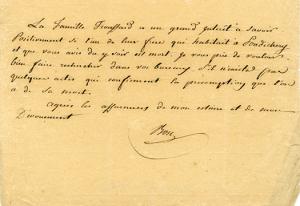 La famille Trouffard a un grand intérêt à savoir
Positivement si l'un de leur frère qui habitait à Pondichery
et que vous avez dû y voir est mort. Je vous prie de vouloir
bien faire rechercher dans vos bureaux s'il n'existe pas
quelques actes qui confirment la présomption que l'on
a de sa mort.
Agréez les assurances de mon estime et de mon
Dévouement